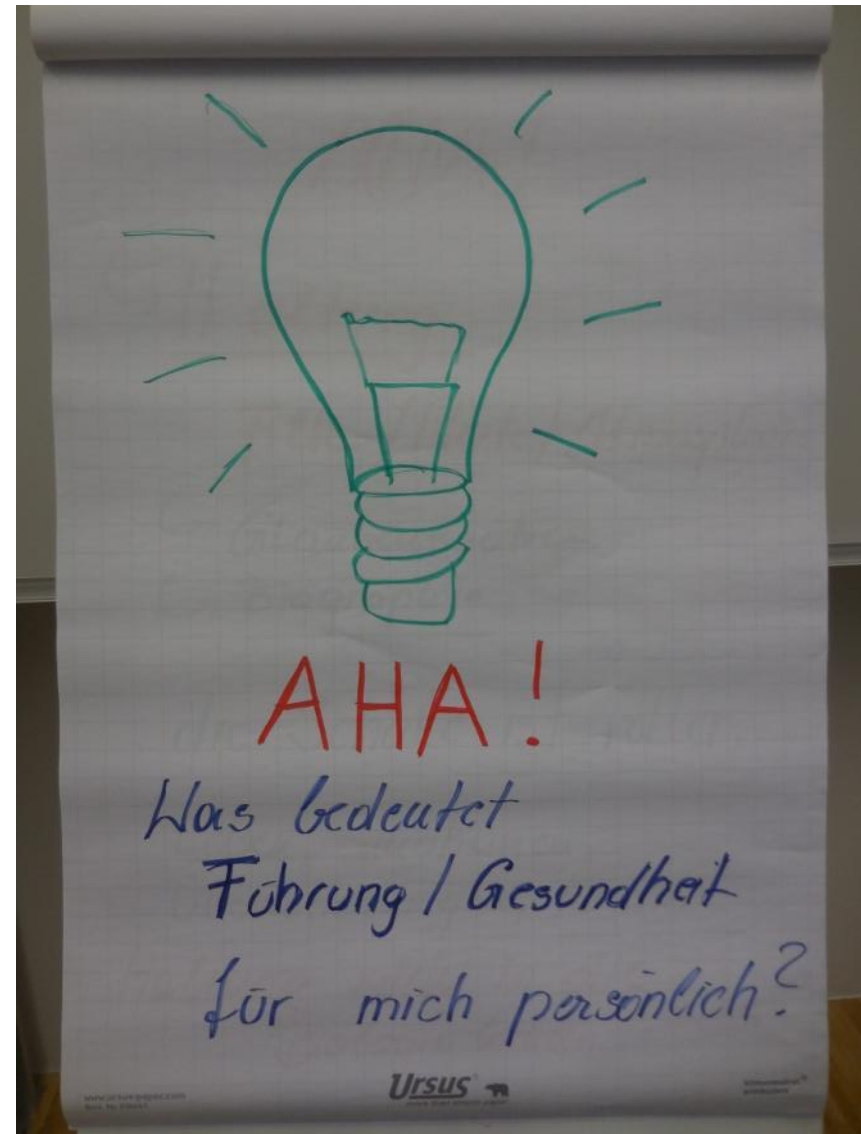 AHA!
Was bedeutet
Führung / Gesundheit
für mich persönlich?
Ursus